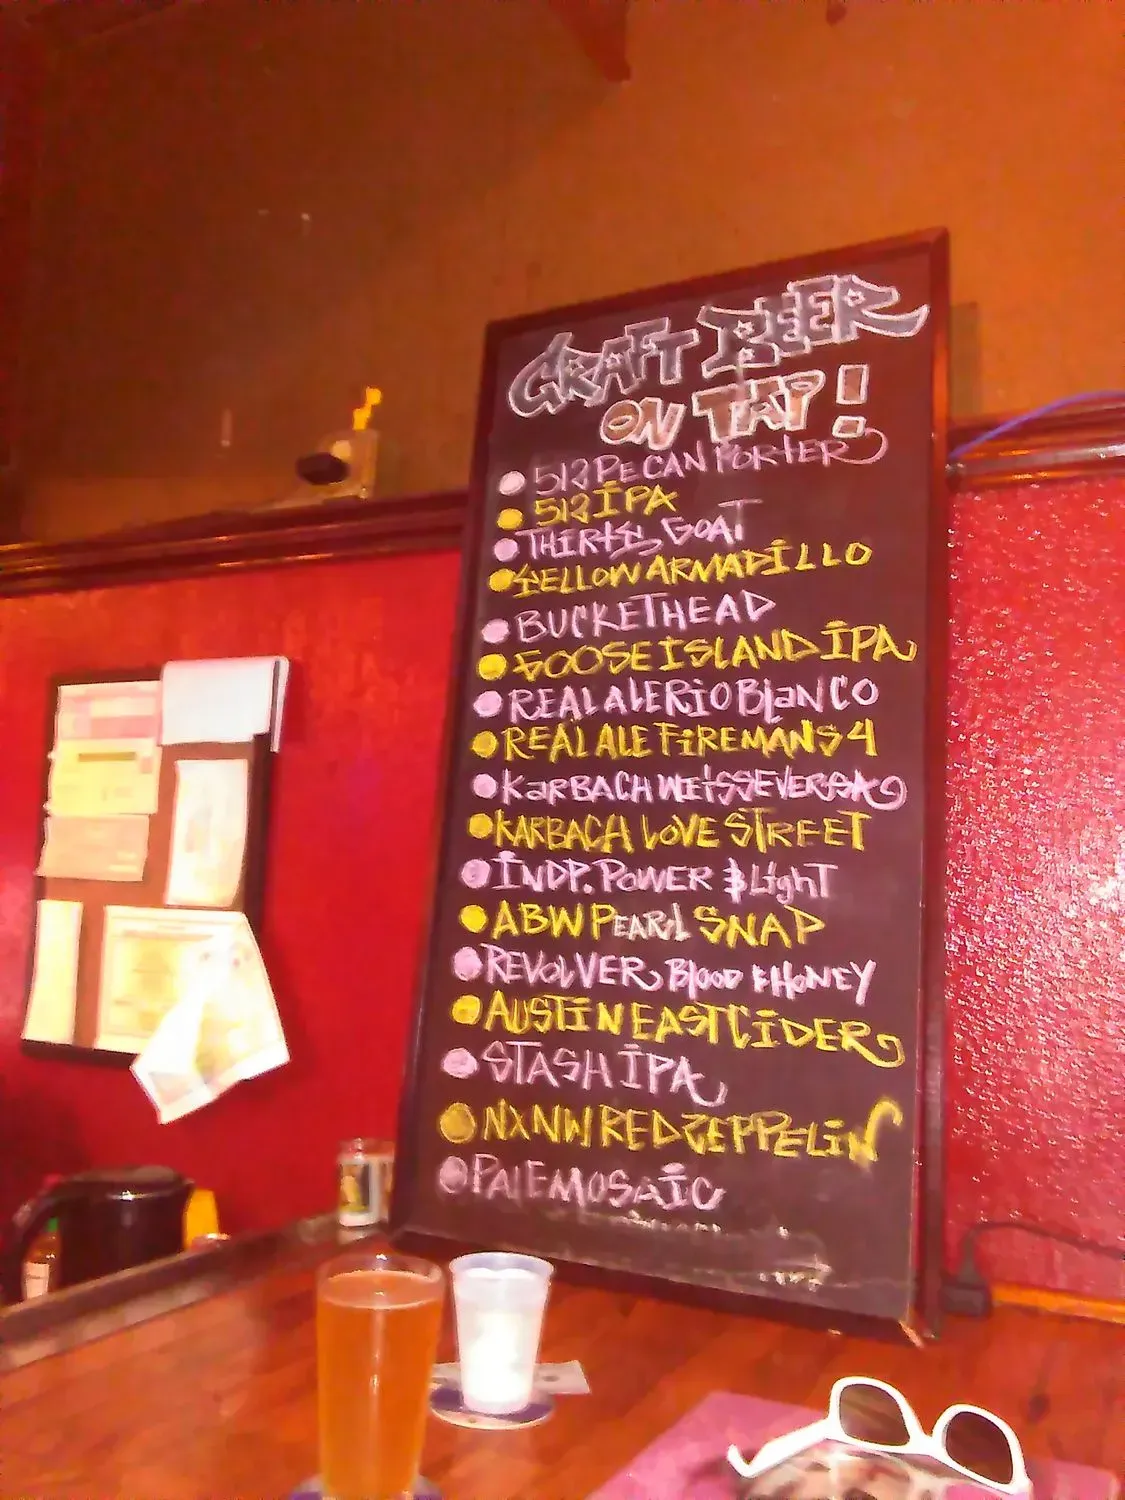 CRAFT BEER
ON TAP!
512 PECAN PORTER
512 IPA
THIRSTY GOAT
YELLOW ARMADILLO
BUCKETHEAD
GOOSE ISLAND IPA
REAL ALE RIO BlanCO
REAL ALE FiREMANS 4
KaRBACH WEISSEVERSA
KARBACH LOVE STREET
INDP. POWER & LighT
ABW PEARL SNAP
REVOLVER Blood & HONEY
AUSTIN EASTCiDER
STASH IPA
NXNW RED ZEPPELIN
PALE MOSAIC